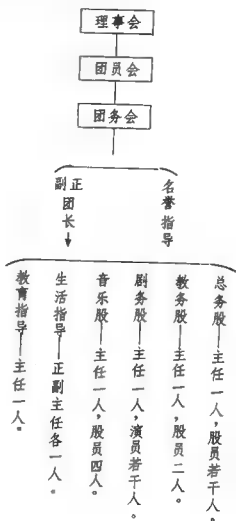 理事会
团员会
团务会
正副团长
名誉指导
总务股——主任一人，股员若干人。
教务股——主任一人，股员二人。
剧务股——主任一人，演员若干人。
音乐股——主任一人，股员四人。
生活指导——正副主任各一人。
教育指导——主任一人。